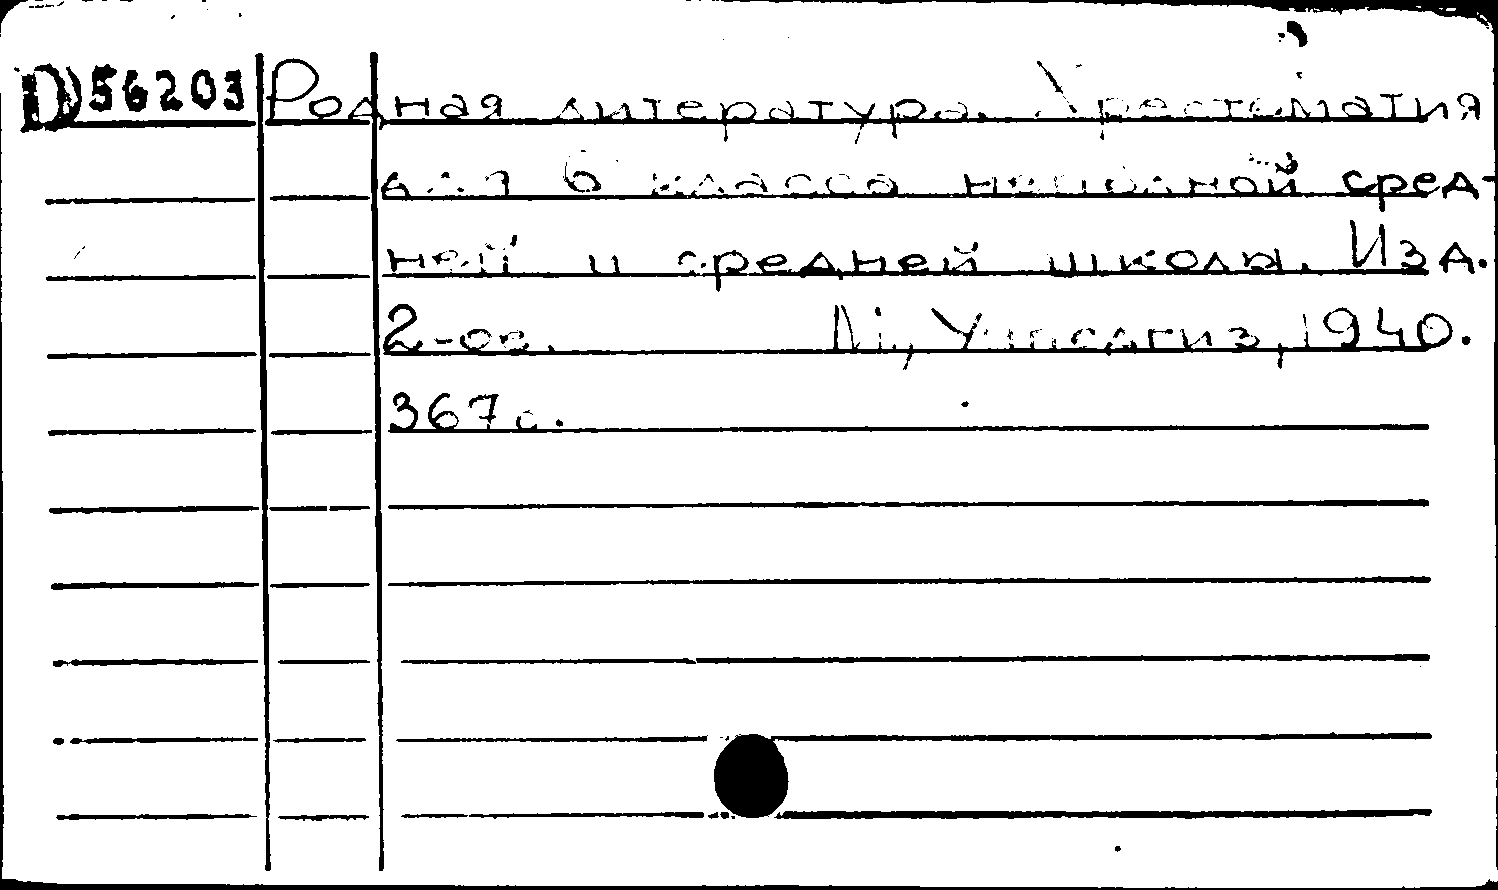 D 56203 Родная литература. Хрестоматия
для 6 класса неполной сред-
ней и средней школы. Изд.
2-ое. М., Учпедгиз, 1940.
367 с.